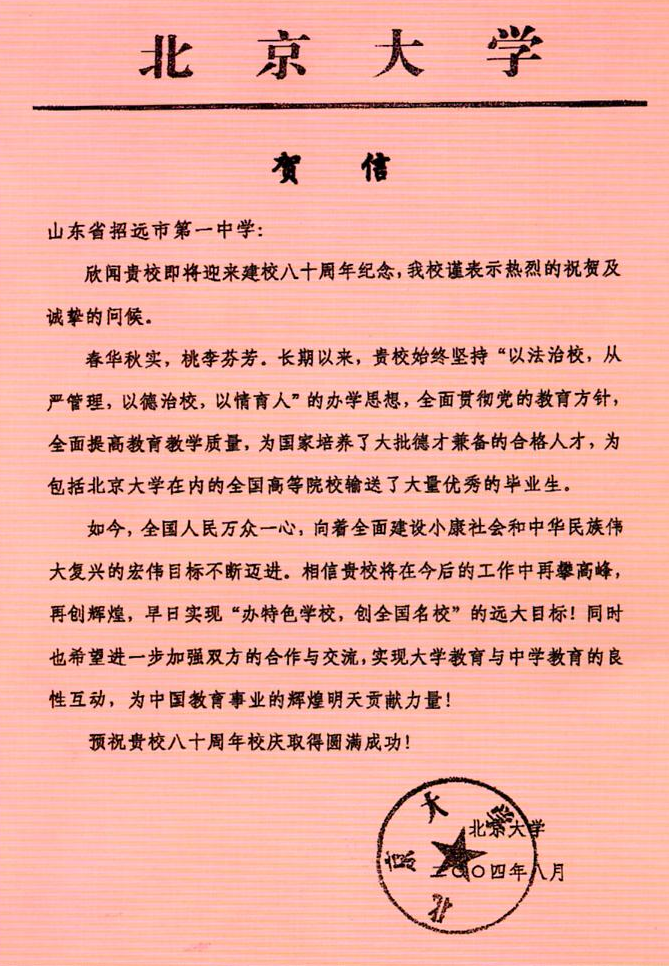 北京大学
贺信
山东省招远市第一中学：
欣闻贵校即将迎来建校八十周年纪念，我校谨表示热烈的祝贺及
诚挚的问候。
春华秋实，桃李芬芳。长期以来，贵校始终坚持“以法治校，从
严管理，以德治校，以情育人”的办学思想，全面贯彻党的教育方针，
全面提高教育教学质量，为国家培养了大批德才兼备的合格人才，为
包括北京大学在内的全国高等院校输送了大量优秀的毕业生。
如今，全国人民万众一心，向着全面建设小康社会和中华民族伟
大复兴的宏伟目标不断迈进。相信贵校将在今后的工作中再攀高峰，
再创辉煌，早日实现“办特色学校，创全国名校”的远大目标！同时
也希望进一步加强双方的合作与交流，实现大学教育与中学教育的良
性互动，为中国教育事业的辉煌明天贡献力量！
预祝贵校八十周年校庆取得圆满成功！
北京大学
北京大学
二〇〇四年八月